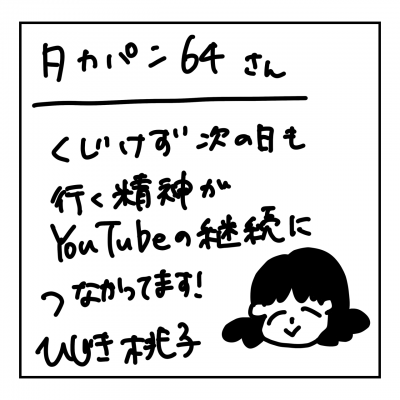 日カパン64さん
くじけず次の日も
行く精神が
YouTubeの継続に
つながってます!
ひじき桃子